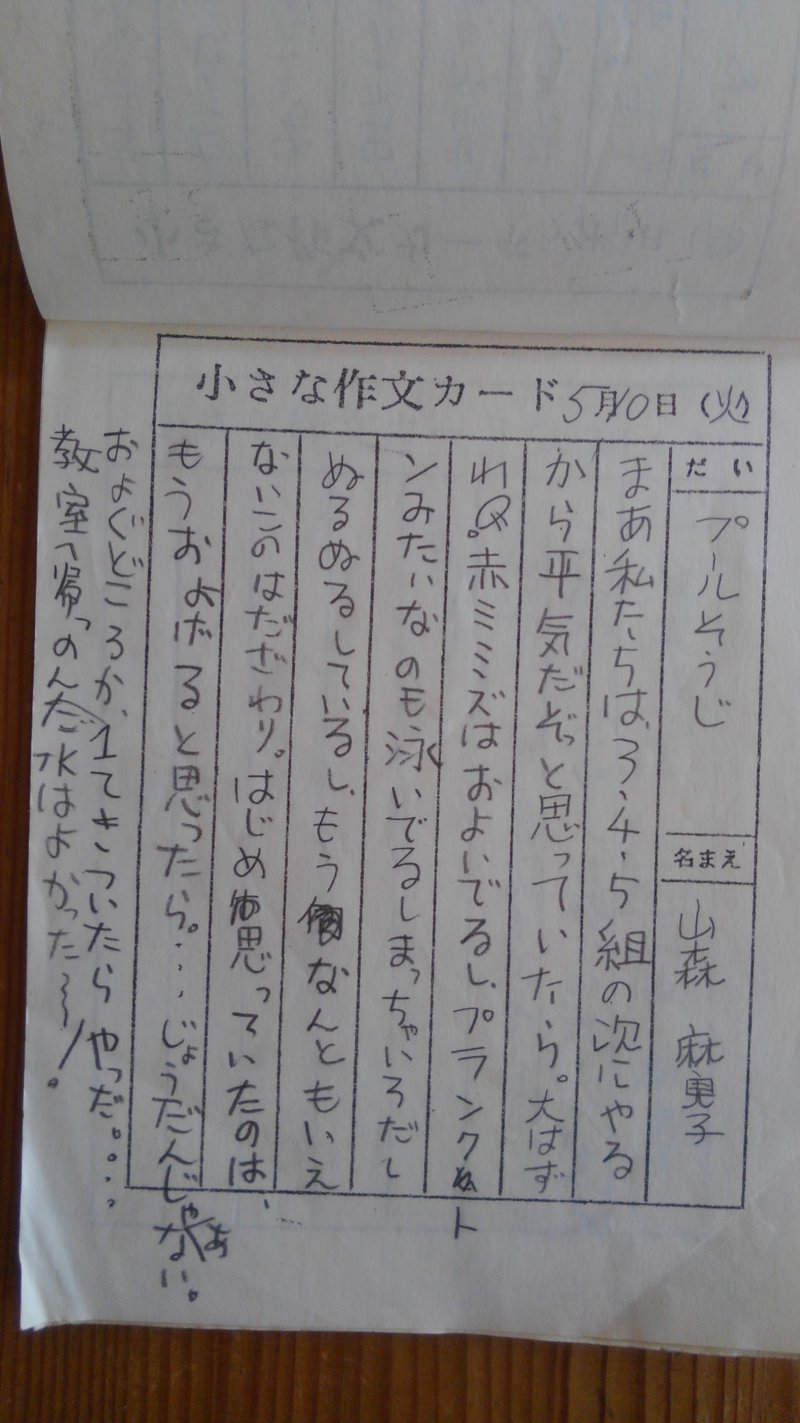 小さな作文カード 5月10日(火)
だい プールそうじ
名まえ 山森 麻勇子
まあ私たちは、3・4・5組の次にやる
から平気だぞっと思っていたら。大はず
れ。赤ミミズはおよいでるし、プランクト
ンみたいなのも泳いでるしまっちゃいろだし
ぬるぬるしているし、もうなんともいえ
ないこのはだざわり。はじめ思っていたのは、
もうおよげると思ったら。・・・じょうだんじゃあない。
およぐどころか、1てきついたらやっだ。・・・
教室へ帰っのんだ水はよかった〜〜!。